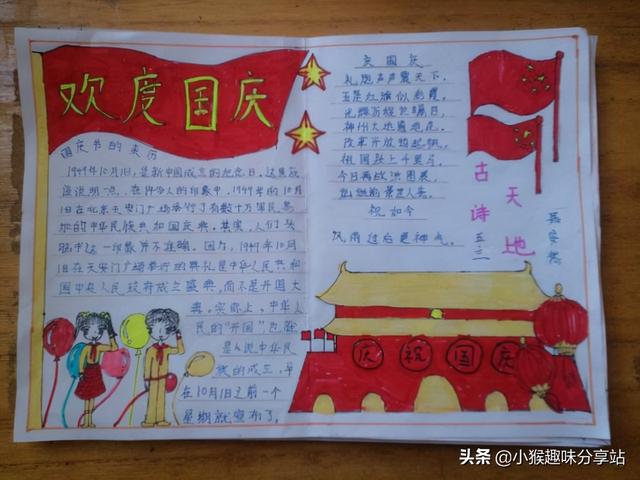 欢度国庆
国庆节的来历
1949年10月1日,是新中国成立的纪念日。这里应
该说明一点,在许多人的印象中,1949年的10月
1日在北京天安门广场举行了有数十万军民参
加的中华人民共和国开国大典。其实,人们头
脑中这一印象并不准确。因为,1949年10月
1日在天安门广场举行的典礼是中华人民共和
国中央人民政府成立盛典,而不是开国大
典。实际上,中华人
民的"开国"也就
是人说中华民
族的成立,早
在10月1日之前一个
星期就宣布了。
庆国庆
礼炮声声震天下,
五星红旗似彩霞。
神州大地遍地花。
改革开放
祖国跃上千里马。
今日再
祝如今
风雨过后更神气。
古诗
天地
五三
庆祝国庆
头条 @小猴趣味分享站